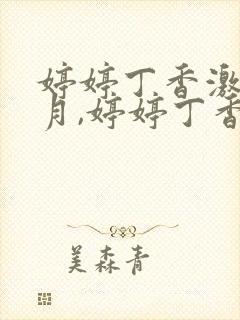 婷婷丁香激
月,婷婷丁香
美森青